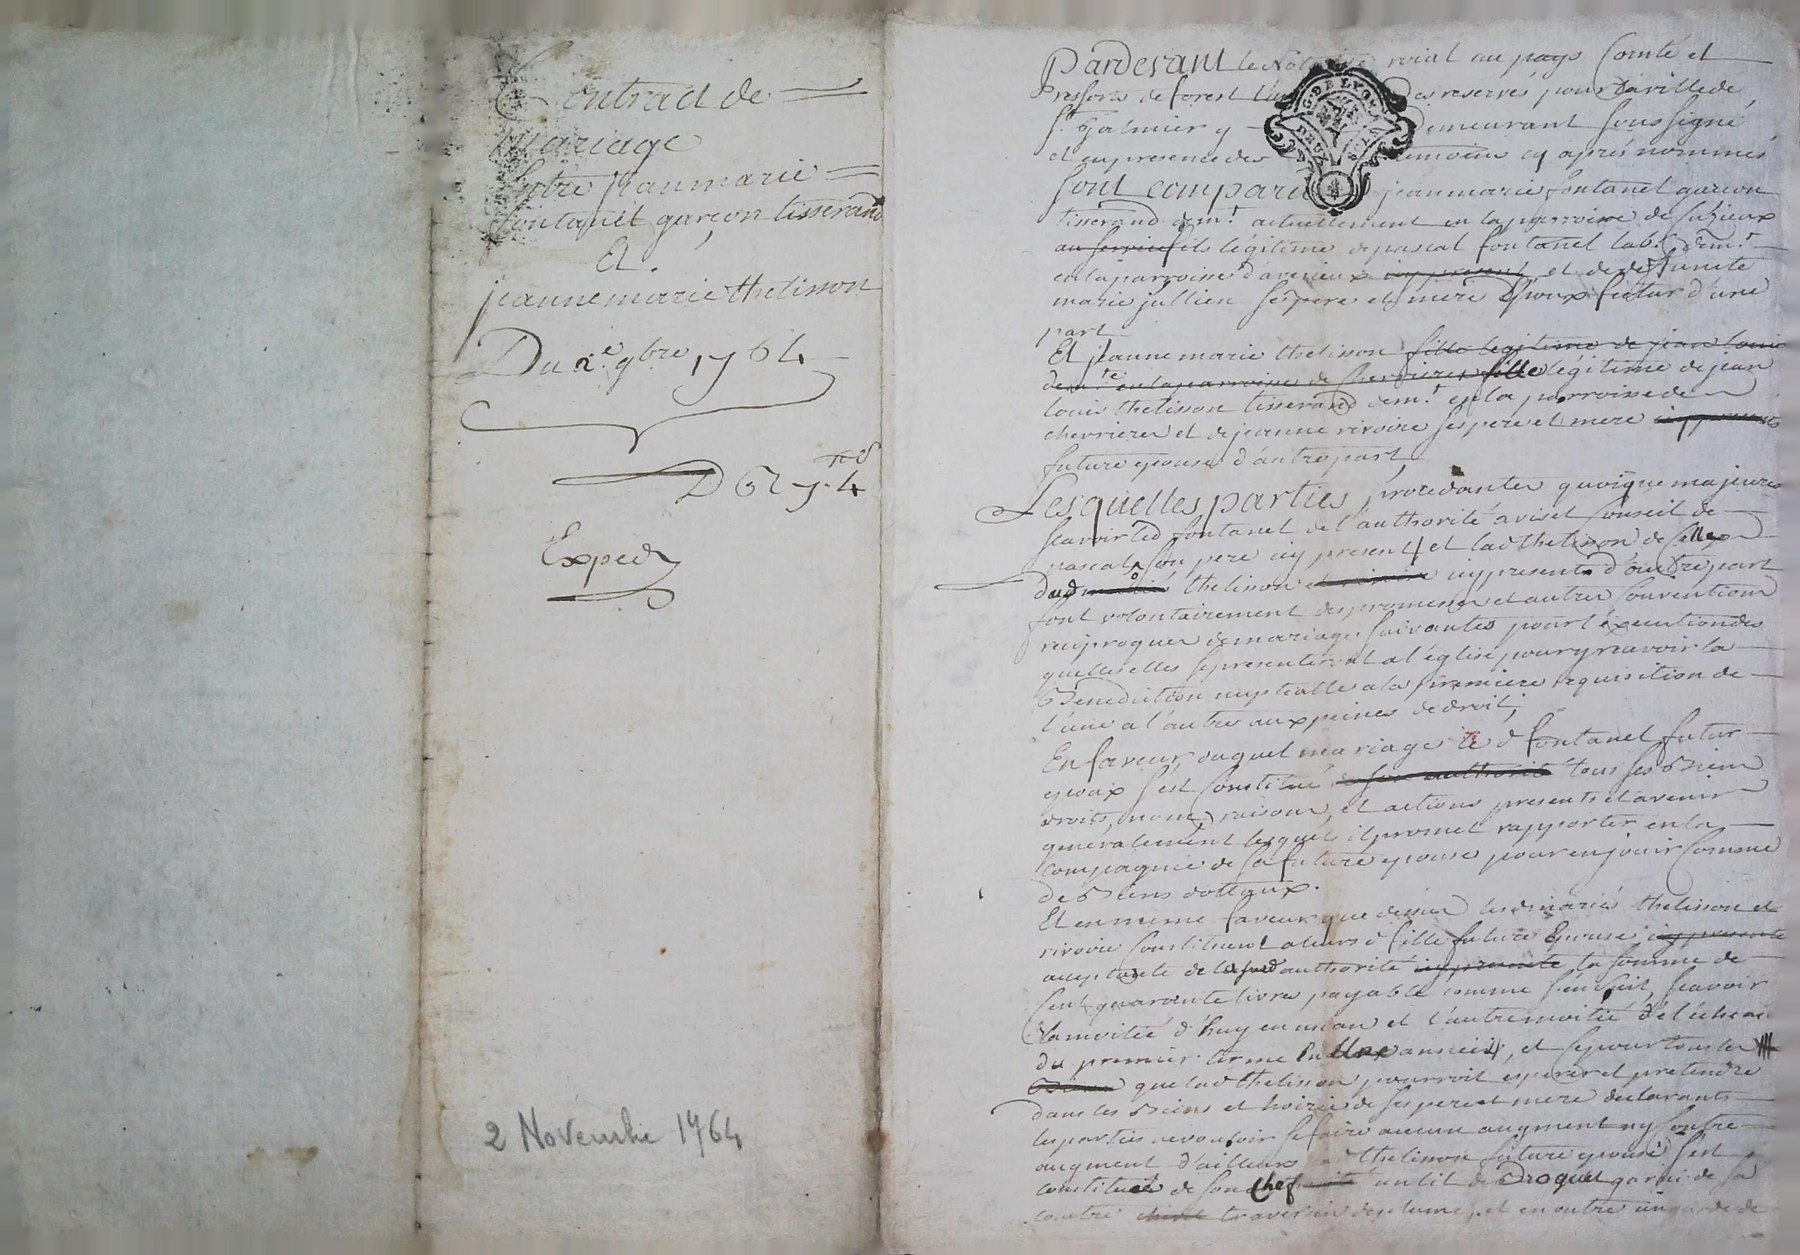 Contract de
mariage
Entre jean marie
fontanel garçon tisserand
Et
jeanne marie thelisson
Du 2e 9bre 1764
Exped
2 Novembre 1764
Pardevant le Notaire roial au pays Comté et
ressorts de forest des reservés pour la ville de
St Galmier y demeurant soussigné
et en presence des temoins cy après nommés
sont comparu jean marie fontanel garcon
tisserand demt actuellement en la parroisse de
au service fils légitime de pascal fontanel labr demt
en la parroisse d'avenieux cy present et de deffunte
marie jullien ses pere et mere Epoux futur d'une
part
Et jeanne marie thelisson fille legitime de jean louis
demte en la parroisse de Chevrieres fille légitime de jean
louis thelisson tisserand demt en la parroisse de
chevrieres et de jeanne rivoire ses pere et mere cy presents
future epouse d'autre part
Lesquelles parties procedantes quoique majeures
scavoir led fontanel de l'authorité avis et Conseil de
pascal son pere icy present et lad thelisson de celle
dud thelisson icy present d'autre part
font volontairement des promesses et autres Conventions
reciproques de mariage suivantes pour l'éxecution des
quelles elles se presenteront a l'église pour y recevoir la
Benediction nuptialle a la premiere requisition de
l'une a l'autre aux peines de droit,
En faveur duquel mariage le d fontanel futur
epoux s'est Constitué de son authorité tous ses Biens
droits, noms, raisons, et actions presents et avenir
generalement lesquels il promet rapporter en la
compagnie de sa future epouse pour en jouir Comme
de Biens dottaux.
Et en meme faveur que dessus les mariés thelisson et
rivoire Constituent a leur d fille future Epouse icy presente
acceptante de leur authorité icy presente la somme de
Cent quarante livres payable comme s'en suit, scavoir
la moitié d'huy en un an et l'autre moitié de l'écheance
du premier terme en année, et ce pour tous les
Biens que lad thelisson pourroit esperer et pretendre
dans les Biens et hoiries de ses pere et mere declarants
les parties ne vouloir se faire aucun augment ny Contre
augment d'ailleurs thelisson future epouse s'est
constituée de son chef un lit de Droguet garni de sa
coutre traversin de plume, et en outre un garde de